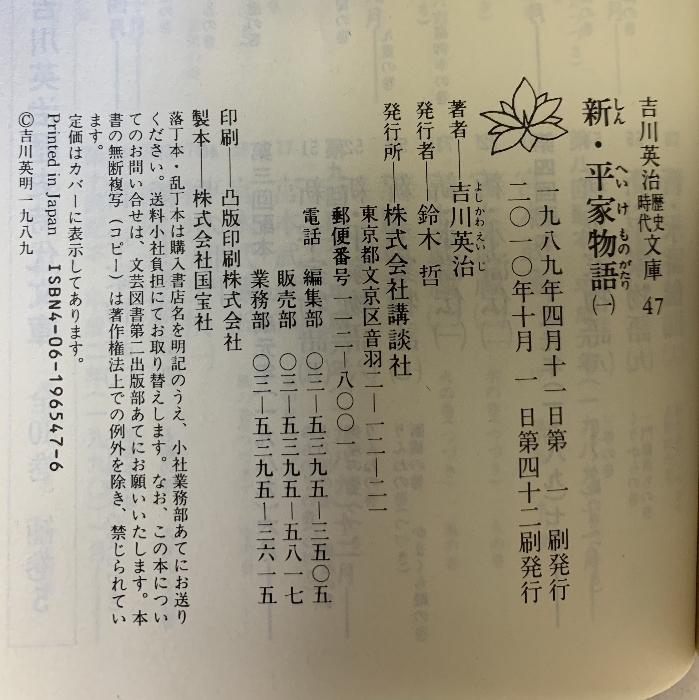 吉川英治歴史時代文庫 47
新・平家物語(一)
しん へい け もの がたり
一九八九年四月十一日第 一 刷発行
二〇一〇年十月 一 日第四十二刷発行
著者—吉川英治
よし かわ えい じ
発行者—鈴木 哲
発行所—株式会社講談社
東京都文京区音羽二—一二—二一
郵便番号 一一二—八〇〇一
電話 編集部 〇三—五三九五—三五〇五
販売部 〇三—五三九五—五八一七
業務部 〇三—五三九五—三六一五
印刷—凸版印刷株式会社
製本—株式会社国宝社
落丁本・乱丁本は購入書店名を明記のうえ、小社業務部あてにお送り
ください。送料小社負担にてお取り替えします。なお、この本につい
てのお問い合せは、文芸図書第二出版部あてにお願いいたします。本
書の無断複写（コピー）は著作権法上での例外を除き、禁じられてい
ます。
定価はカバーに表示してあります。
Printed in Japan ISBN4-06-196547-6
©吉川英明一九八九